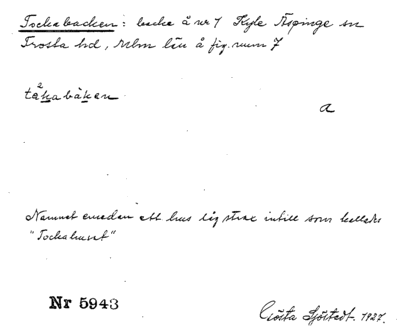 Tockabacken: backe å nr 1 Kyle Äspinge sn
Frosta hd, Mlm län å fig. num 7
tåkabåken
a
Namnet emedan ett hus lig strax intill som kallas
"Tockahuset"
Nr 5943
Gösta Sjöstedt. 1927.